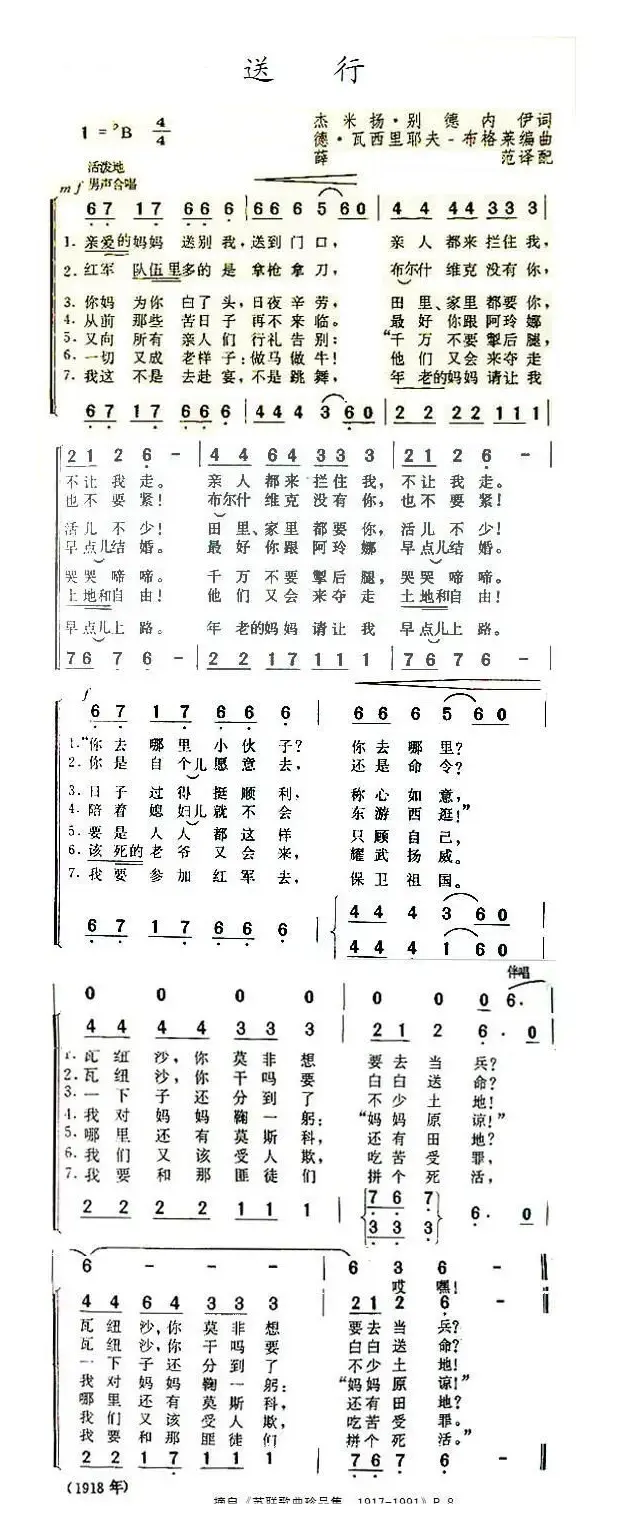 送 行
1=♭B 4/4
杰米扬·别德内伊词
德·瓦西里耶夫-布格莱编曲
薛 范译配
活泼地
mf 男声合唱
6 7 1 7 6 6 6 | 6 6 6 5 6 0 | 4 4 4 4 3 3 3 |
1. 亲爱的妈妈 送别我，送到门口， 亲人都来拦住我，
2. 红军 队伍里多的是 拿枪拿刀， 布尔什维克没有你，
3. 你妈 为你 白了头，日夜辛劳， 田里、家里都要你，
4. 从前 那些 苦日子 再不来临。 最好你跟阿玲娜
5. 又向 所有 亲人们 行礼告别： “千万不要掣后腿，
6. 一切 又成 老样子：做马做牛！ 他们又会来夺走
7. 我这 不是 去赴宴，不是跳舞， 年老的妈妈请让我
6 7 1 7 6 6 6 | 4 4 4 3 6 0 | 2 2 2 2 1 1 1 |
2 1 2 6 - | 4 4 6 4 3 3 3 | 2 1 2 6 - |
不让我走。 亲人都来拦住我，不让我走。
也不要紧！ 布尔什维克没有你，也不要紧！
活儿不少！ 田里、家里都要你，活儿不少！
早点儿结婚。 最好你跟阿玲娜 早点儿结婚。
哭哭啼啼。 千万不要掣后腿，哭哭啼啼。
土地和自由！ 他们又会来夺走 土地和自由！
早点儿上路。 年老的妈妈请让我 早点儿上路。
7 6 7 6 - | 2 2 1 7 1 1 1 | 7 6 7 6 - |
f
6 7 1 7 6 6 6 | 6 6 6 5 6 0 |
1. “你去哪里小伙子？ 你去哪里？
2. 你是自个儿愿意去， 还是命令？
3. 日子过得挺顺利， 称心如意，
4. 陪着媳妇儿就不会 东游西逛！”
5. 要是人人都这样 只顾自己，
6. 该死的老爷又会来， 耀武扬威。
7. 我要参加红军去， 保卫祖国。
4 4 4 3 6 0
6 7 1 7 6 6 6 |
4 4 4 1 6 0
伴唱
0 0 0 0 | 0 0 0 6. |
4 4 4 4 3 3 3 | 2 1 2 6. 0
1. 瓦纽沙，你莫非想 要去当兵？
2. 瓦纽沙，你干吗要 白白送命？
3. 一下子还分到了 不少土地！
4. 我对妈妈鞠一躬： “妈妈原谅！”
5. 哪里还有莫斯科， 还有田地？
6. 我们又该受人欺， 吃苦受罪，
7. 我要和那匪徒们 拼个死活，
2 2 2 2 1 1 1 | 7 6 7 6. 0
3 3 3
6 - - - | 6 3 6 - ‖
哎嘿！
4 4 6 4 3 3 3 | 2 1 2 6 -
瓦纽沙，你莫非想 要去当兵？
瓦纽沙，你干吗要 白白送命？
一下子还分到了 不少土地！
我对妈妈鞠一躬： “妈妈原谅！”
哪里还有莫斯科， 还有田地？
我们又该受人欺， 吃苦受罪。
我要和那匪徒们 拼个死活。”
2 2 1 7 1 1 1 | 7 6 7 6 - ‖
(1918年)
摘自《苏联歌曲珍品集 1917-1991》P.8